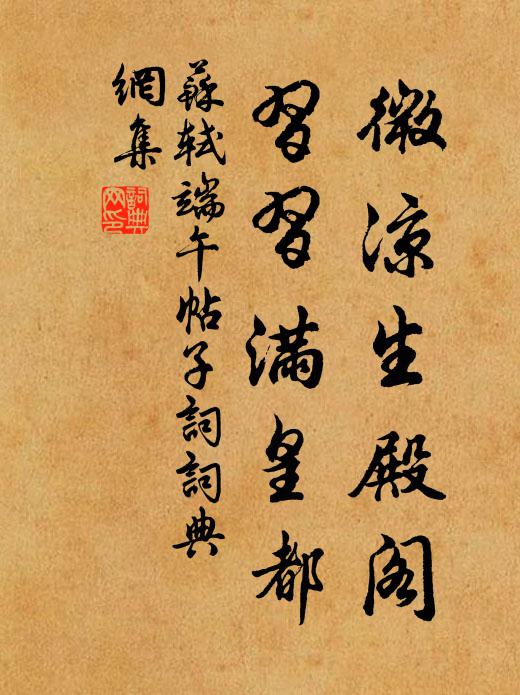 微涼生殿閣
習習滿皇都
蘇軾端午帖子詞詞典
網集
詞典
网印